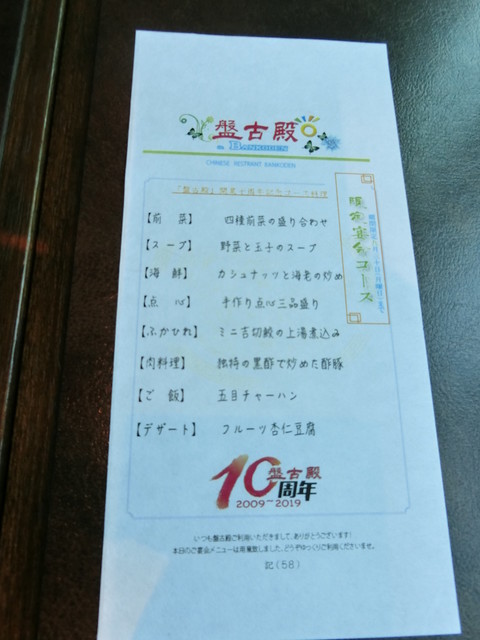 盤古殿
BANKODEN
CHINESE RESTRANT BANKODEN
「盤古殿」開業十周年記念コース料理
限定宴会コース
【前 菜】 四種前菜の盛り合わせ
【スープ】 野菜と玉子のスープ
【海 鮮】 カシュナッツと海老の炒め
【点 心】 手作り点心三品盛り
【ふかひれ】 ミニ吉切鮫の上湯煮込み
【肉料理】 独特の黒酢で炒めた酢豚
【ご 飯】 五目チャーハン
【デザート】 フルーツ杏仁豆腐
10周年
盤古殿
2009～2019
いつも盤古殿ご利用いただきまして、ありがとうございます!
本日のご宴会メニューは用意致しました、どうぞゆっくりご利用くださいませ。
記(58)